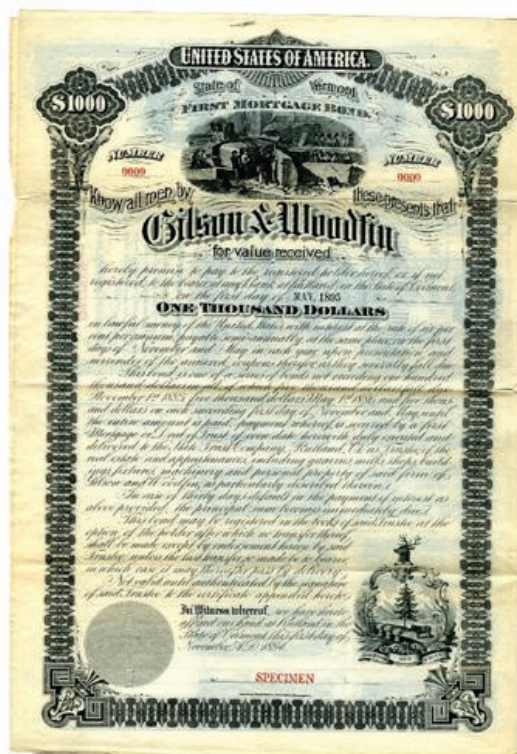 UNITED STATES OF AMERICA.
State of Vermont
$1000 $1000
FIRST MORTGAGE BOND.
NUMBER NUMBER
0000 0000
Know all men by these presents that
Gilson & Woodfin
for value received
hereby promise to pay to the registered holder hereof, or if not
registered to the bearer at any Bank at Rutland in the State of Vermont
on the first day of MAY, 1895
ONE THOUSAND DOLLARS
in lawful money of the United States with interest at the rate of six per
cent per annum, payable semi-annually, at the same place, on the first
days of November and May in each year, upon presentation and
surrender of the annexed coupons therefor as they severally fall due.
This bond is one of a series of bonds not exceeding one hundred
thousand dollars in all, of which five thousand
November 1st 1885, five thousand dollars May 1st 1886 and five thous-
and dollars on each succeeding first day of November and May, until
the entire amount is paid, payment whereof is secured by a first
Mortgage or Deed of Trust of even date herewith duly executed and
delivered to the State Trust Company, Rutland, Vt. as Trustee, of the
real estate and appurtenances, including quarries, mills, shops, build-
ings, fixtures, machinery and personal property of said firm of
Gilson and Woodfin, as particularly described therein.
In case of thirty days default in the payment of interest as
above provided, the principal sum becomes immediately due.
This bond may be registered in the books of said Trustee at the
option of the holder after which no transfer thereof,
shall be made except by endorsement hereon by said
Trustee, unless the last transfer so made be to bearer,
in which case it may thereafter pass by delivery.
Not valid until authenticated by the signature
of said Trustee to the certificate appended hereto.
In Witness whereof, we have hereto
affixed our hand at Rutland in the
State of Vermont, this first day of
November, A.D. 1884.
SPECIMEN